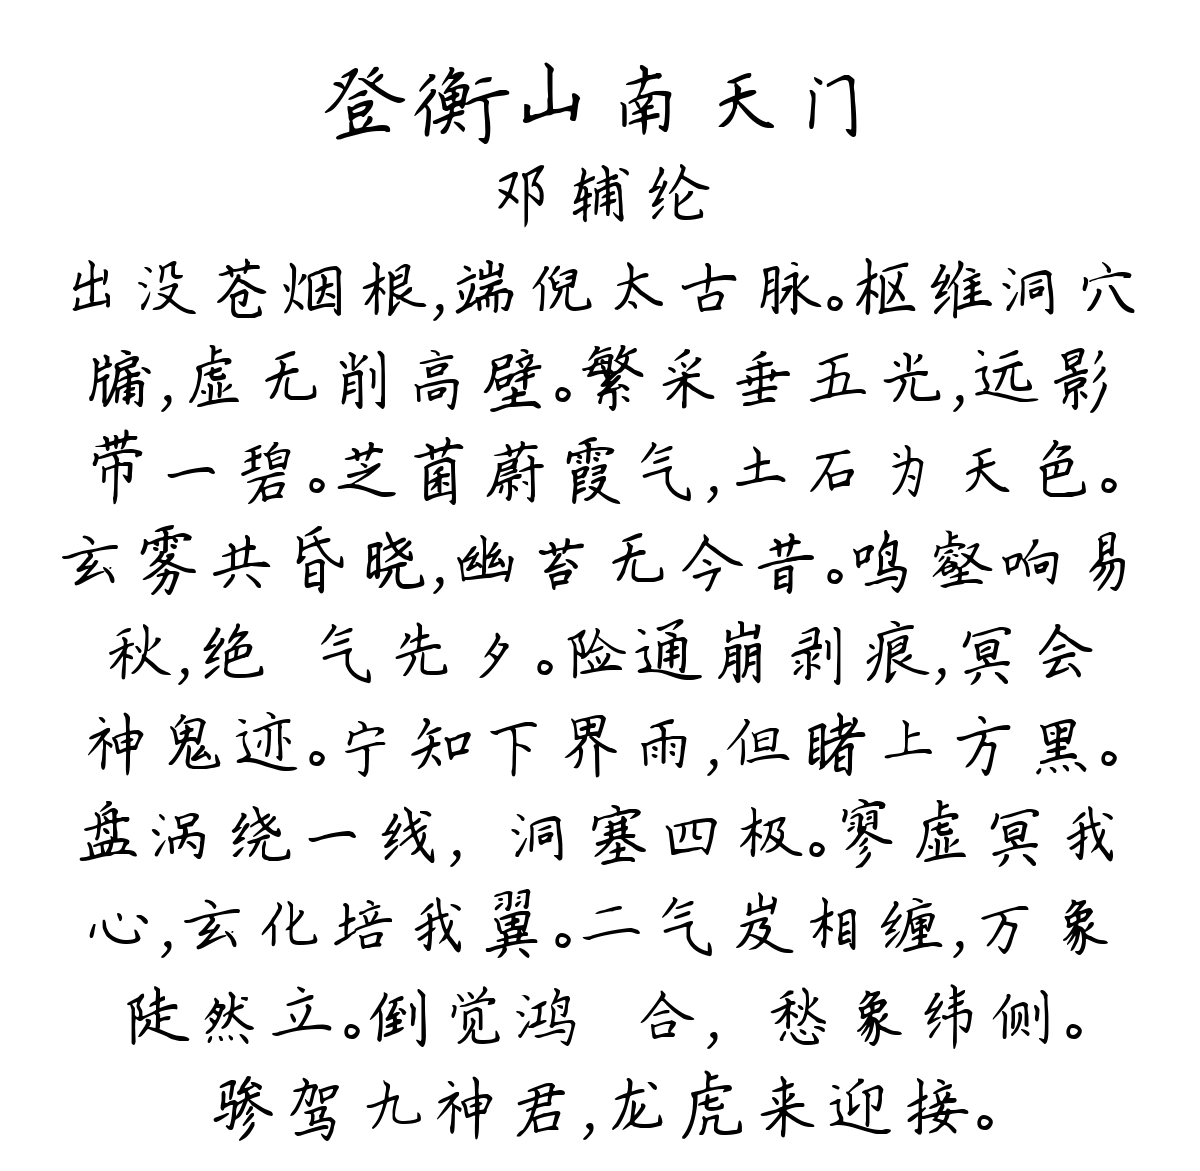 登衡山南天门
邓辅纶
出没苍烟根,端倪太古脉。枢维洞穴
牖,虚无削高壁。繁采垂五光,远影
带一碧。芝菌蔚霞气,土石为天色。
玄雾共昏晓,幽苔无今昔。鸣壑响易
秋,绝 气先夕。险通崩剥痕,冥会
神鬼迹。宁知下界雨,但睹上方黑。
盘涡绕一线, 洞塞四极。寥虚冥我
心,玄化培我翼。二气岌相缠,万象
陡然立。倒觉鸿 合, 愁象纬侧。
骖驾九神君,龙虎来迎接。